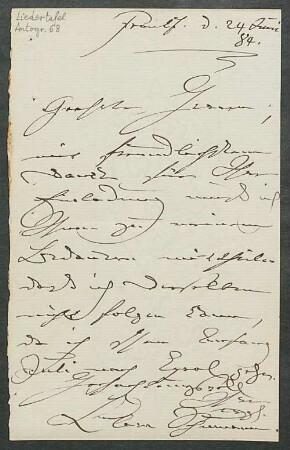 Liedertafel
Autogr. 68
Frankf. d. 24 Juni
84.
Geehrter Herr,
mit freundlichstem
Dank für Ihre
Einladung muß ich
Ihnen zu meinem
Bedauern mittheilen
daß ich derselben
nicht folgen kann,
da ich schon Anfang
Juli nach Tyrol gehe.
Hochachtungsvoll
Ihr
Clara Schumann